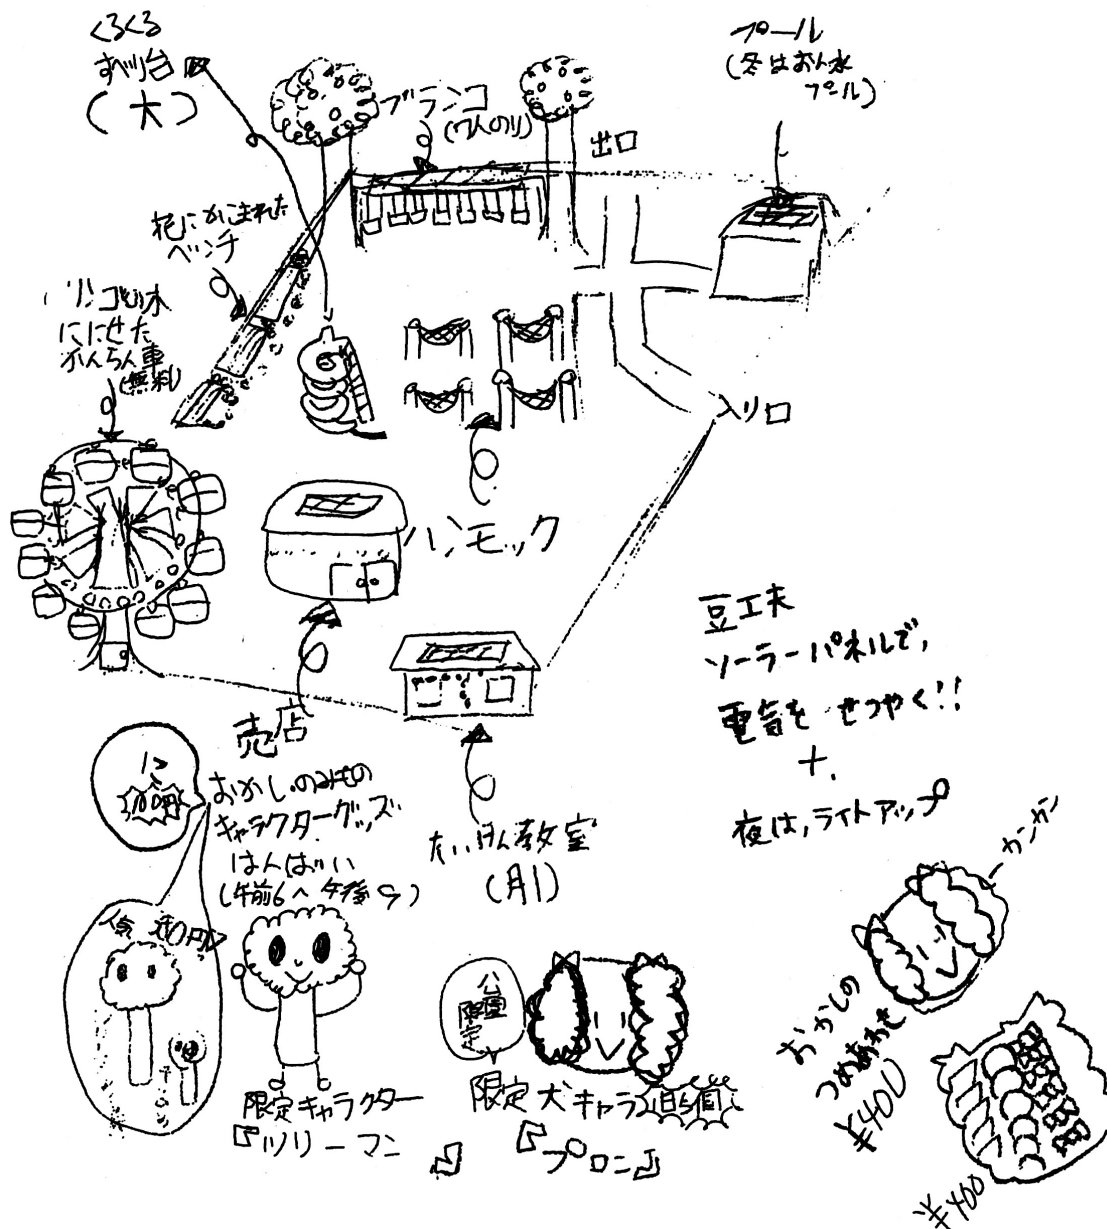 くるくる
すべり台
(大)
ブランコ
(7人のり)
出口
プール
(冬はおん水
プール)
花にかこまれた
ベンチ
リンゴの木
ににせた
かんらん車
(無料)
入り口
ハンモック
売店
おかしのみもの
キャラクターグッズ
はんばい
(午前6〜午後9)
たいけん教室
(月1)
豆工夫
ソーラーパネルで、
電気を せつやく!!
+
夜は,ライトアップ
1つ
人気
限定キャラクター
『ツリーマン
』
公園
限定
限定犬キャラ
1日5個
『プロン』
カンカン
おかしの
つめあわせ
¥400
¥400